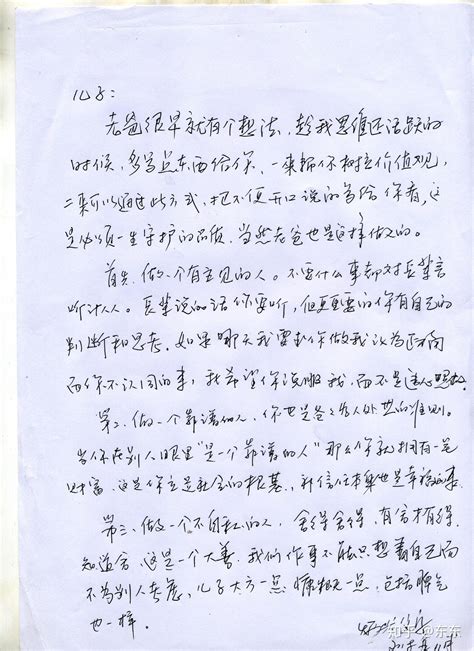 儿子：
老爸很早就有个想法，趁我思维还活跃的
时候，多写点东西给你，一来帮你树立价值观，
二来可以通过此方式，把不便开口说的写给你看，这
是必须一生守护的品质，当然老爸也是这样做的。
首先，做一个有主见的人。不要什么事都对长辈言
听计从。长辈说的话你要听，但更重要的你有自己的
判断和思考。如果哪天我要求你做我认为正确
而你不认同的事，我希望你说服我，而不是违心照
第二，做一个靠谱的人，你也是爸爸为人处世的准则。
当你在别人眼里"是一个靠谱的人"那么你就拥有一笔
财富，这是你立足社会的根基，
第三，做一个不自私的人，舍得舍得，有舍才有得，
知道舍，这是一个大善，我们作事不能只想着自己而
不为别人考虑，儿子大方一点，慷慨一点，包括脾气
也一样。
知乎 @东东